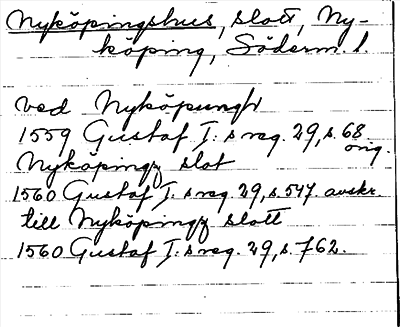 Nyköpingshus, slott, Ny-
köping, Söderm. l.
ved Nyköpungh
1559 Gustaf I:s reg. 29, s. 68.
orig.
Nyköpingz slot
1560 Gustaf I:s reg. 29, s. 547. avskr.
till Nyköpingz slott
1560 Gustaf I:s reg. 29, s. 762.